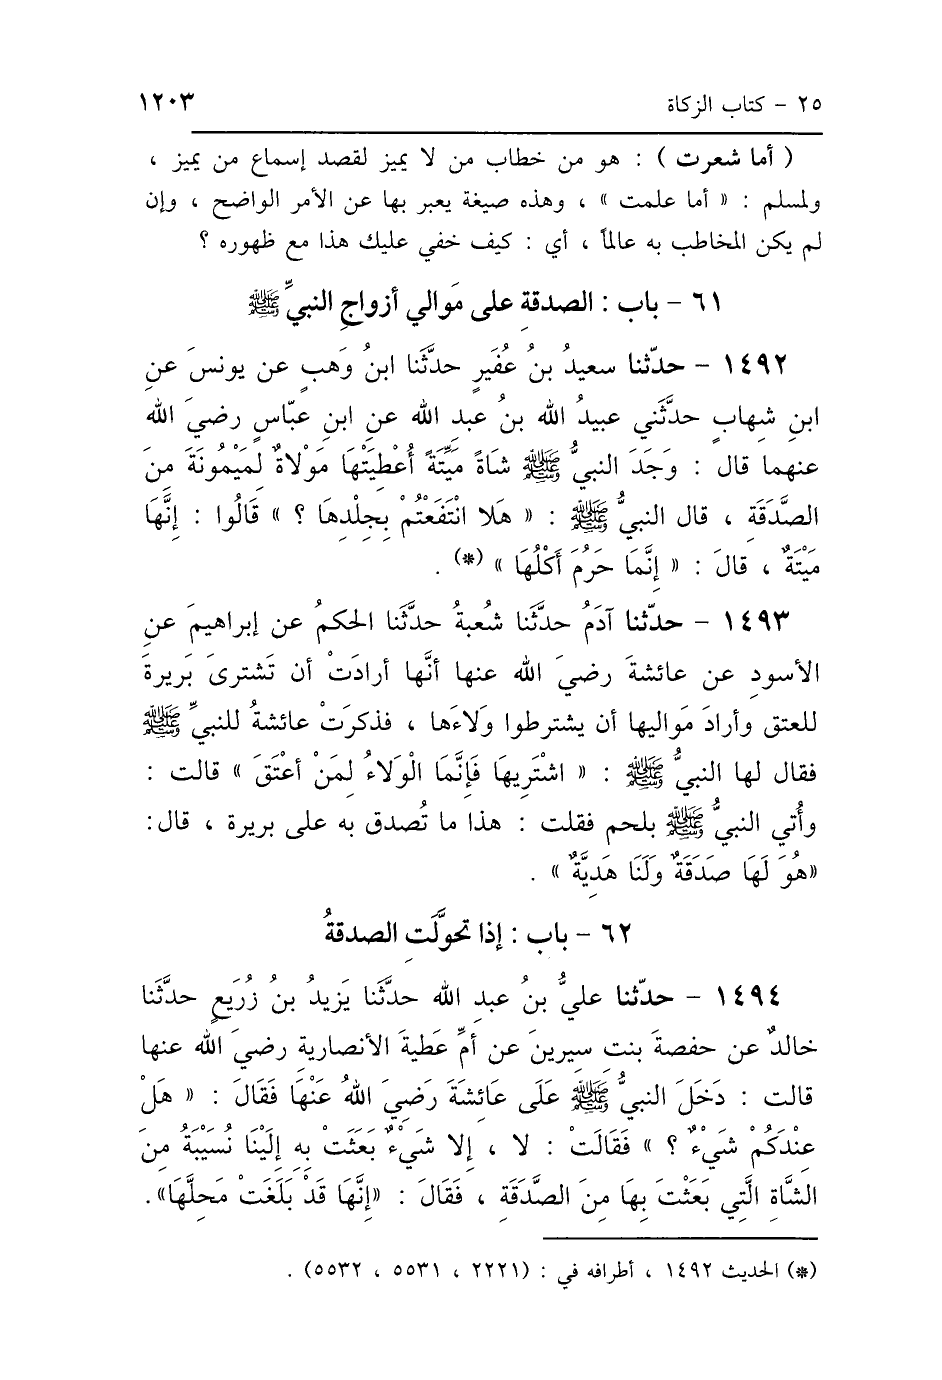 ٢٥ - كتاب الزكاة ١٢٠٣
( أما شعرت ) : هو من خطاب من لا يميز لقصد إسماع من يميز ،
ولمسلم : « أما علمت » ، وهذه صيغة يعبر بها عن الأمر الواضح ، وإن
لم يكن المخاطب به عالماً ، أي : كيف خفي عليك هذا مع ظهوره ؟
٦١ - باب : الصدقةِ على مَوالي أزواجِ النبيِّ ﷺ
١٤٩٢ - حدّثنا سعيدُ بنُ عُفَيرٍ حدَّثَنا ابنُ وَهبٍ عن يونسَ عنِ
ابنِ شهابٍ حدَّثَني عبيدُ الله بنُ عبدِ الله عنِ ابنِ عبّاسٍ رضيَ الله
عنهما قال : وَجَدَ النبيُّ ﷺ شَاةً مَيِّتَةً أُعْطِيَتْهَا مَوْلاةٌ لِمَيْمُونَةَ مِنَ
الصَّدَقَةِ ، قال النبيُّ ﷺ : « هَلا انْتَفَعْتُمْ بِجِلْدِهَا ؟ » قَالُوا : إِنَّهَا
مَيْتَةٌ ، قالَ : « إِنَّمَا حَرُمَ أَكْلُهَا » (*) .
١٤٩٣ - حدّثنا آدَمُ حدَّثَنا شُعبةُ حدَّثَنا الحكمُ عن إبراهيمَ عنِ
الأسودِ عن عائشةَ رضيَ الله عنها أنَّها أرادَتْ أن تَشترىَ بَريرةَ
للعتقِ وأرادَ مَواليها أن يشترطوا وَلاءَها ، فذكرَتْ عائشةُ للنبيِّ ﷺ
فقال لها النبيُّ ﷺ : « اشْتَرِيهَا فَإِنَّمَا الْوَلاءُ لِمَنْ أعْتَقَ » قالت :
وأُتي النبيُّ ﷺ بلحم فقلت : هذا ما تُصدق به على بريرة ، قال:
«هُوَ لَهَا صَدَقَةٌ وَلَنَا هَدِيَّةٌ » .
٦٢ - باب : إذا تحوَّلَتِ الصدقةُ
١٤٩٤ - حدّثنا عليُّ بنُ عبدِ الله حدَّثَنا يَزيدُ بنُ زُرَيعٍ حدَّثَنا
خالدٌ عن حفصةَ بنتِ سِيرِينَ عن أمِّ عَطيةَ الأنصاريةِ رضيَ الله عنها
قالت : دَخَلَ النبيُّ ﷺ عَلَى عَائِشَةَ رَضِيَ اللهُ عَنْهَا فَقَالَ : « هَلْ
عِنْدَكُمْ شَيْءٌ ؟ » فَقَالَتْ : لا ، إِلا شَيْءٌ بَعَثَتْ بِهِ إِلَيْنَا نُسَيْبَةُ مِنَ
الشَّاةِ الَّتِي بَعَثْتَ بِهَا مِنَ الصَّدَقَةِ ، فَقَالَ : «إِنَّهَا قَدْ بَلَغَتْ مَحِلَّهَا».
(*) الحديث ١٤٩٢ ، أطرافه في : (٢٢٢١ ، ٥٥٣١ ، ٥٥٣٢) .